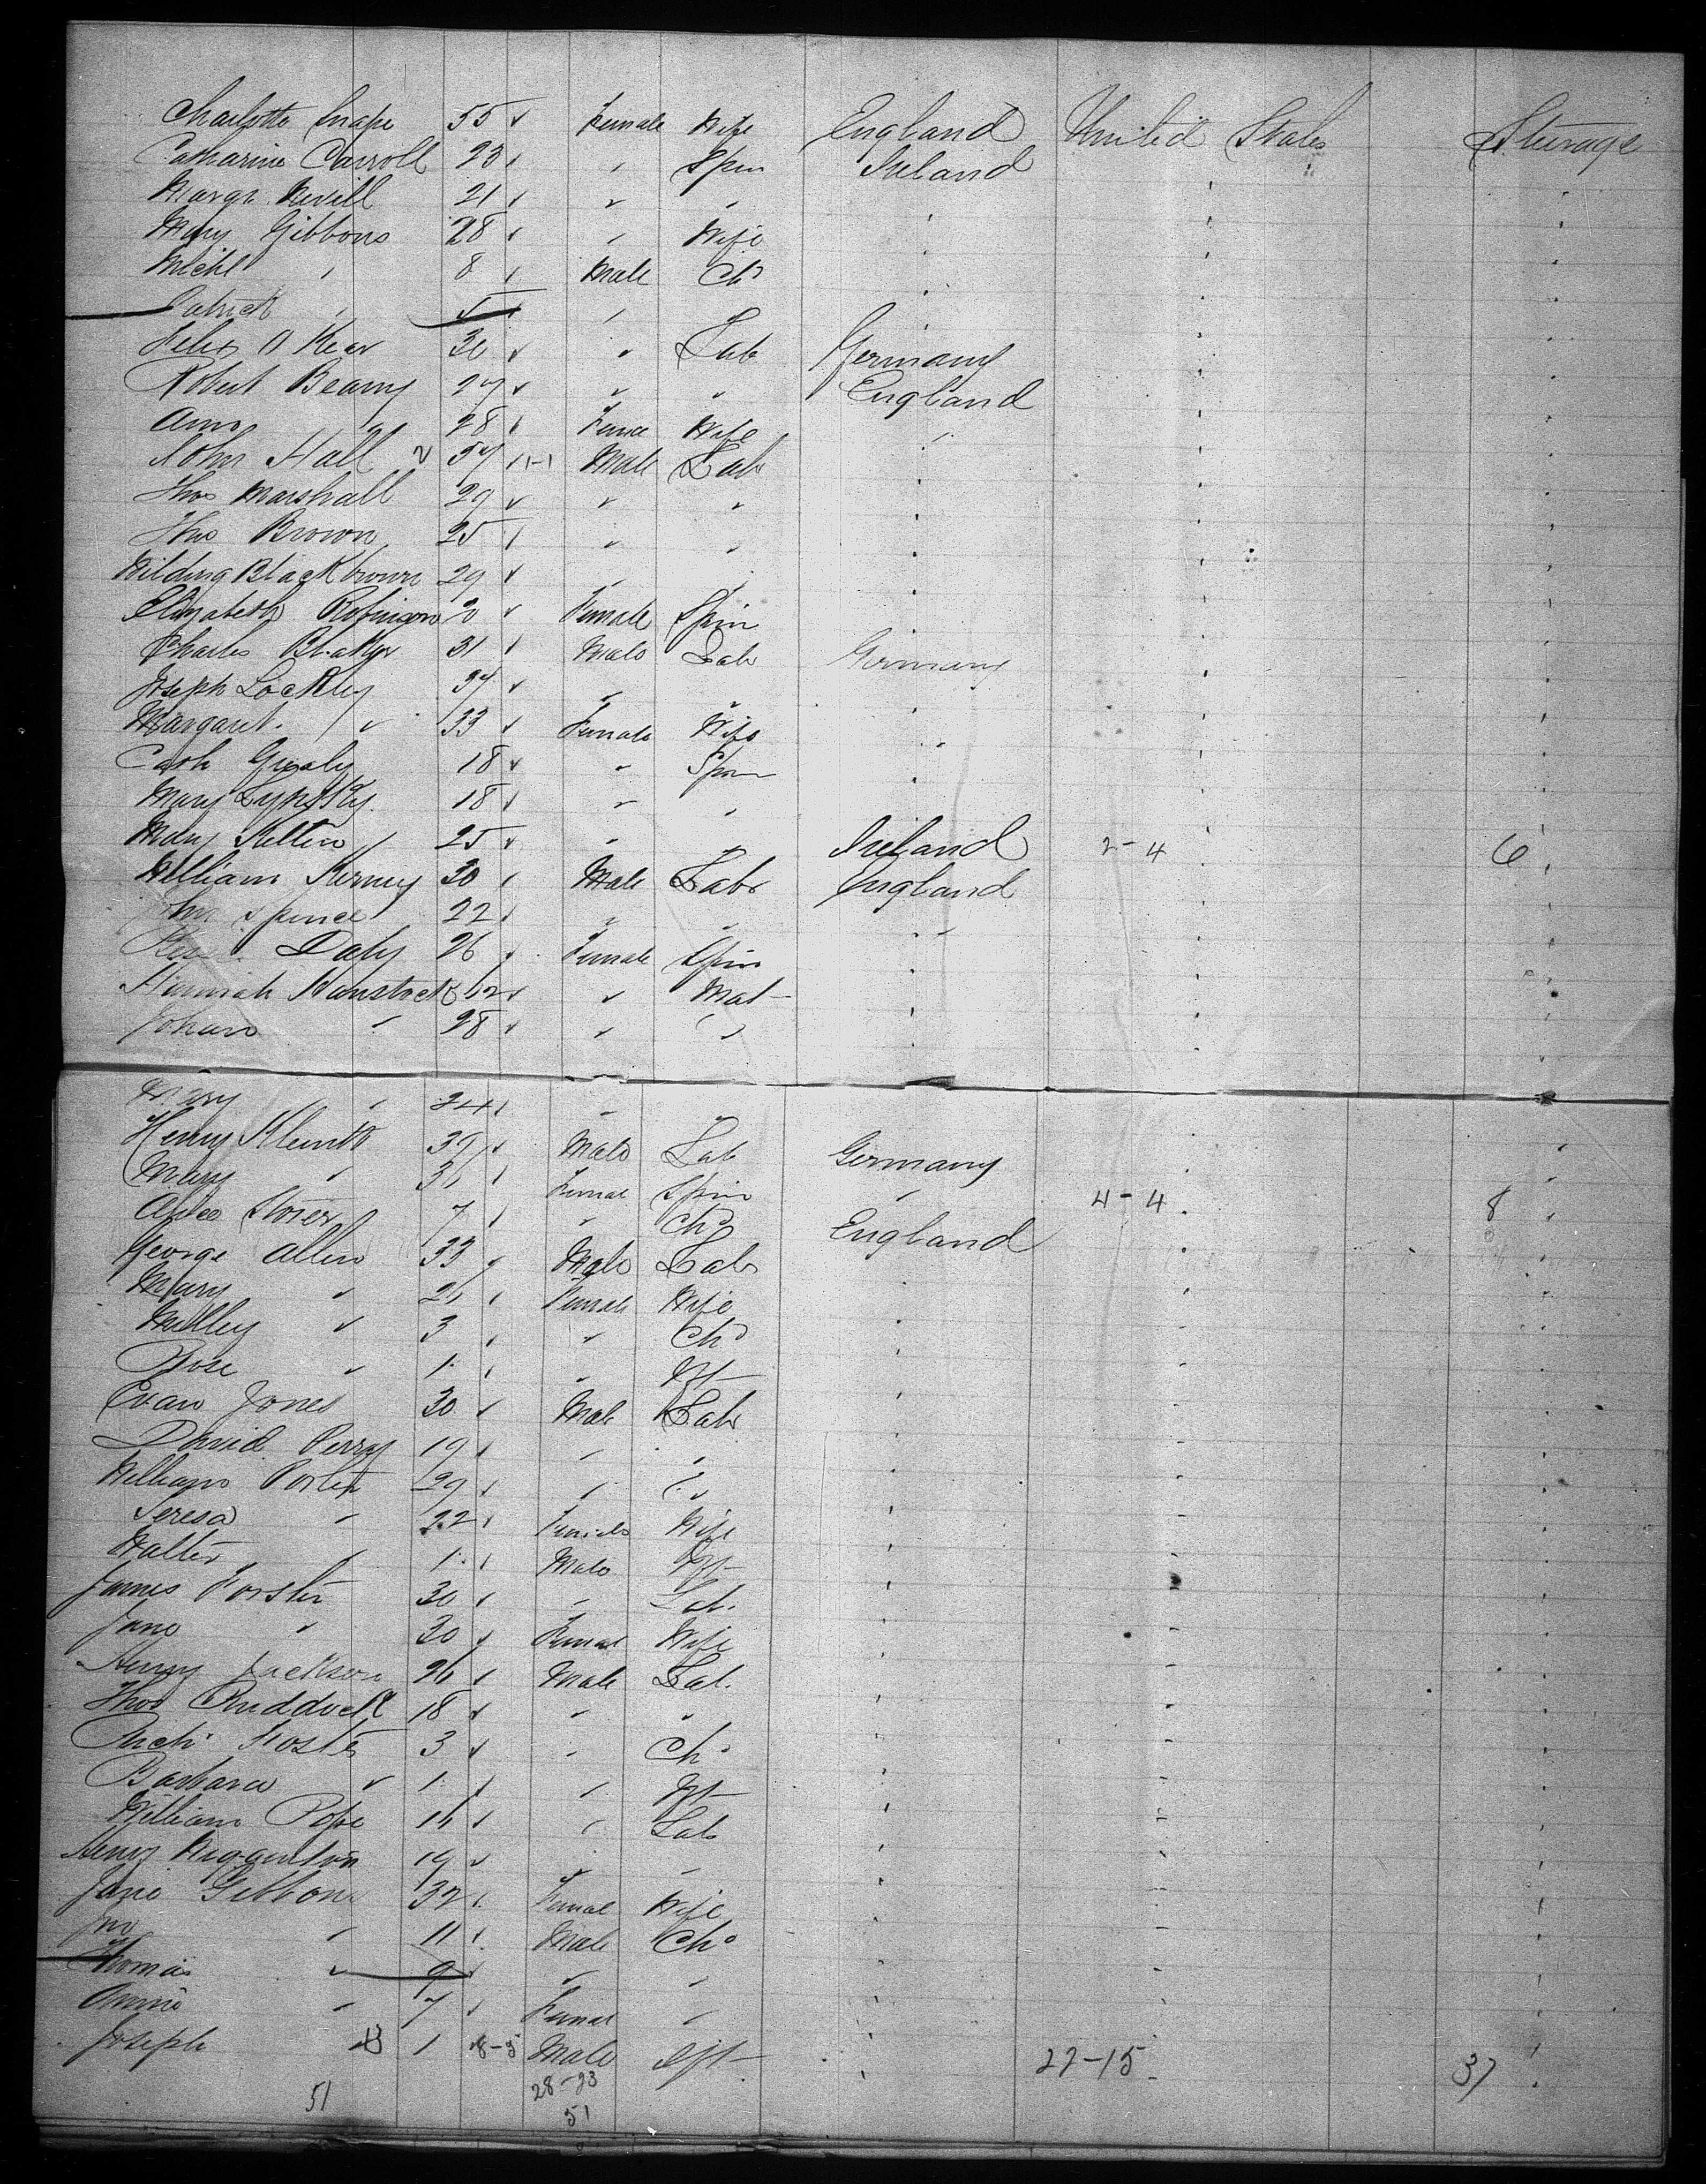 Charlotte Snape 55 Female Wife England United States Steerage
Catharine Carroll 23 " Spin Ireland
Margt. Nevill 21 " "
Mary Gibbons 28 " Wife
Michl " 8 Male Chd
Patrick " 5 "
Felix O Kear 30 " Lab Germany
Robert Beamy 27 " " England
Ann " 28 Female Wife "
John Hall 2 57 1-1 Male Lab
Thos Marshall 29 " "
Thos Brown 25 " "
Wilding Blackbrown 29 " "
Elizabeth Robinson 20 Female Spin
Charles 31 Male Lab Germany
Joseph Lockley 37 " "
Margaret " 33 Female Wife
Cath 18 " Spin
Mary 18 " "
Mary 25 " " Ireland 2-4 6
William Kerney 30 Male Labr England
John Spence 22 " " "
Daly 26 Female Spin
Hannah 62 " Mat
" 28 " "
Mary " 24 "
Henry 39 Male Lab Germany
Mary " 36 Female Spin " 4-4 8
Storer 7 " Chd England
George Allen 33 Male Lab
Mary " 26 Female Wife
Milley " 3 " Chd
Rose " 1 " Ift
Evan Jones 30 Male Lab
David Perry 19 " "
William 29 " "
Teresa " 22 Female Wife
Walter " 1 Male Ift
James Forster 30 " Lab.
Jane " 30 Female Wife
Henry Jackson 26 Male Lab.
Thos Rudduck 18 " "
Foster 3 " Chd
Barbara " 1 " Ift
William Pope 16 " Lab
Henry 19 " "
Jane Gibbons 32 Female Wife
Jno " 11 Male Chd
Thomas " 9 " "
Annie " 7 Female "
Joseph 1 8-5 Male Ift 22-15 37
51 28-23
51